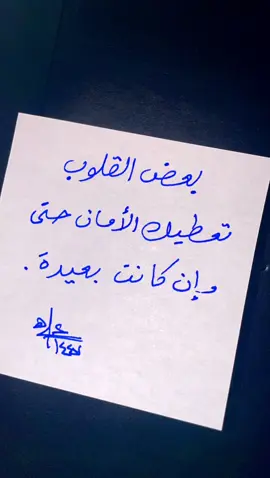 بعض القلوب
تعطيك الأمان حتى
وإن كانت بعيدة .